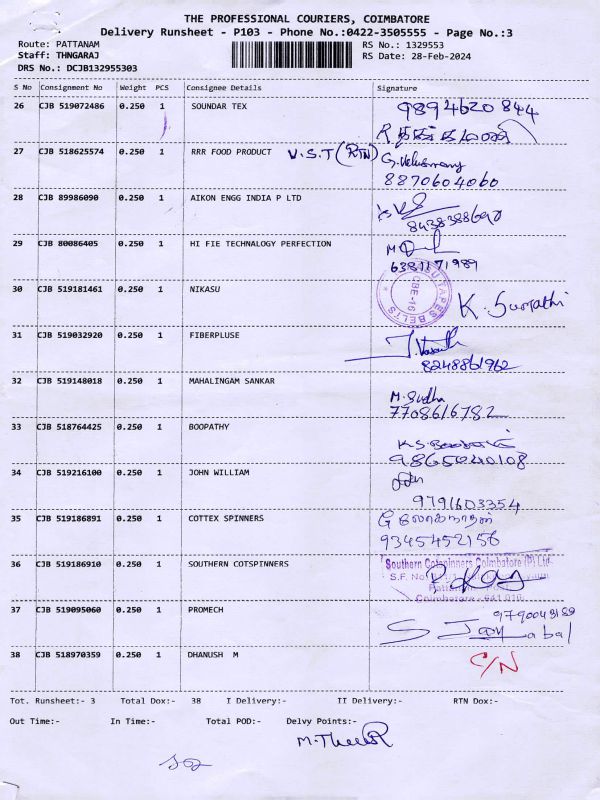 THE PROFESSIONAL COURIERS, COIMBATORE
Delivery Runsheet - P103 - Phone No.:0422-3505555 - Page No.:3
Route: PATTANAM RS No.: 1329553
Staff: THNGARAJ RS Date: 28-Feb-2024
DRS No.: DCJB132955303
S No Consignment No Weight PCS Consignee Details Signature
26 CJB 519072486 0.250 1 SOUNDAR TEX 9894620844
27 CJB 518625574 0.250 1 RRR FOOD PRODUCT V.S.T (RTN) G.Velusmamy
8870604060
28 CJB 89986090 0.250 1 AIKON ENGG INDIA P LTD
8438388690
29 CJB 80086405 0.250 1 HI FIE TECHNALOGY PERFECTION
6381171989
30 CJB 519181461 0.250 1 NIKASU U TAPES BELTS CBE-16 K. Sumathi
31 CJB 519032920 0.250 1 FIBERPLUSE J.Vasanth
8248861962
32 CJB 519148018 0.250 1 MAHALINGAM SANKAR M.Sudha
7708616782
33 CJB 518764425 0.250 1 BOOPATHY K.S.
9865040108
34 CJB 519216100 0.250 1 JOHN WILLIAM
9791603354
35 CJB 519186891 0.250 1 COTTEX SPINNERS G லோகநாதன்
9345452156
36 CJB 519186910 0.250 1 SOUTHERN COTSPINNERS Southern Cotspinners Coimbatore (P) Ltd
S.F. No
Coimbatore - 641 016
37 CJB 519095060 0.250 1 PROMECH 9790043189
S Jayabal
38 CJB 518970359 0.250 1 DHANUSH M C/N
Tot. Runsheet:- 3 Total Dox:- 38 I Delivery:- II Delivery:- RTN Dox:-
Out Time:- In Time:- Total POD:- Delvy Points:-